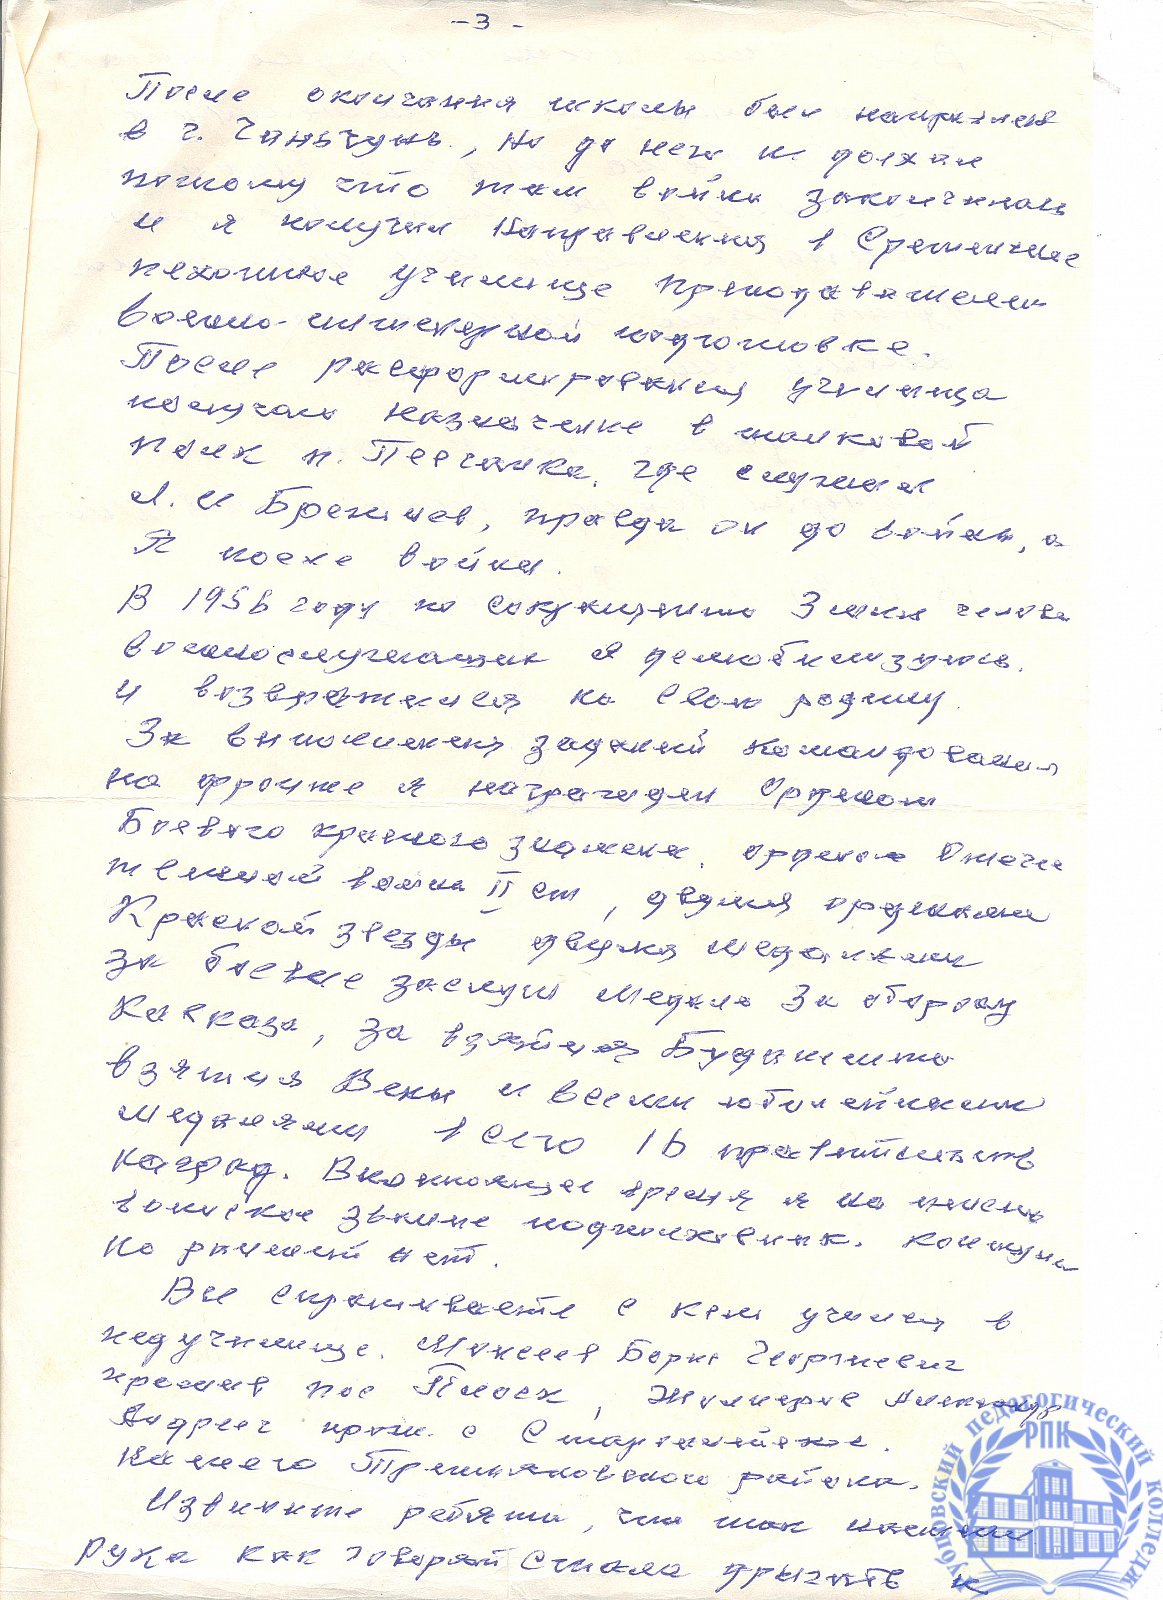 -3-
После окончания школы был направлен
в г. Чаньчунь, но до него не доехал
потому что там война закончилась
и я получил направления в Сретенское
пехотное училище преподавателем
военно-инженерной подготовке.
После расформирования училища
получаю назначение в танковой
полк п. Песчанка, где служил
Л. И Брежнев, правда он до войны, а
Я после войны.
В 1956 году по сокращению
военнослужащих я демобилизуюсь.
и возвратился на свою родину.
За выполнения заданий командования
на фронте я награжден Орденом
Боевого красного знамени, орденом Отече
твенной войны II ст, двумя орденами
Красной звезды двумя медалями
за боевые заслуги медаль За оборону
Кавказа, за взятия Будапешта
взятия Вены и всеми юбилейными
медалями всего 16 правительств
наград. В время я
воинское звание подполковник.
но ранений нет.
Вы спрашиваете с кем учился в
педучилище. Моисеев Борис Георгиевич
прожив пос Плоск, Александр
Андреев прож. с
нашего района.
Извините ребята, что так
рука как говорят стала прыгать и
Рубцовский педагогический колледж
РПК